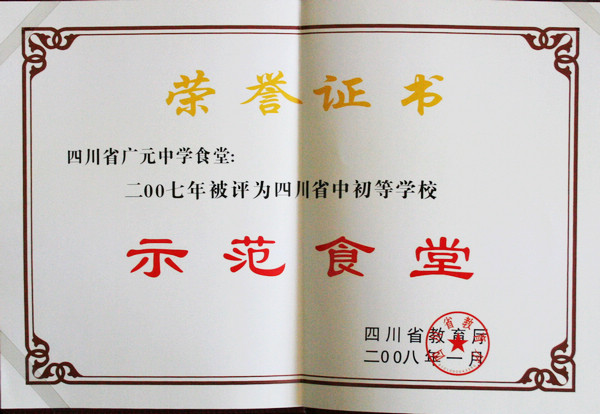 荣誉证书
四川省广元中学食堂:
二00七年被评为四川省中初等学校
示范食堂
四川省教育厅
二00八年一月